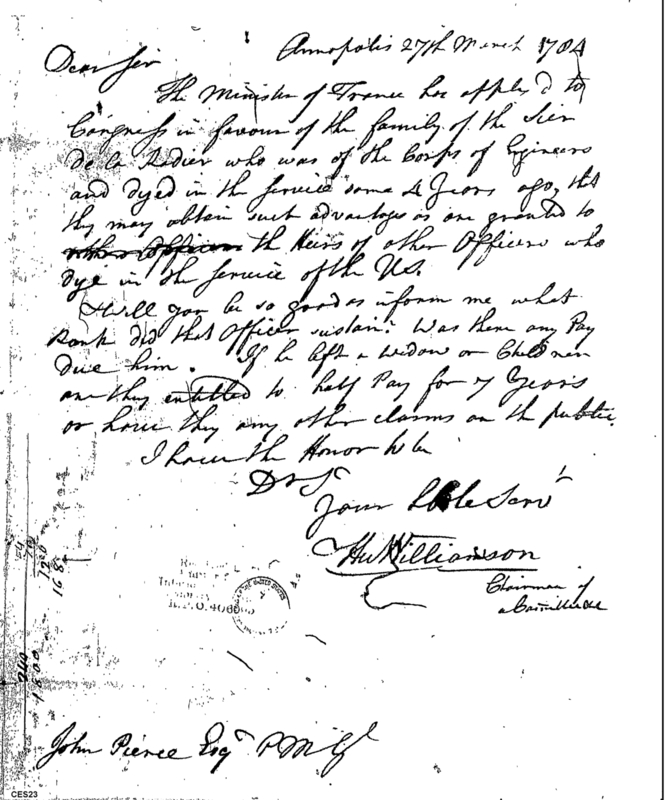 Annopolis 27th March 1784
Dear Sir
The Minister of France has applyed to
Congress in favour of the family of the Sier
de la Radier who was of the Corps of Egineers
and dyed in the Service some 4 Years ago, that
they may obtain such advantages as are granted to
the Heirs of other Officers who
dye in the service of the U.S.
Will you be so good as inform me what
Rank did that Officer sustain? Was there any Pay
due him. If he left a widow or Children
are they entitled to half Pay for 7 Years
or have they any other claims on the public.
I have the Honor to be
Dr Sr
Your Servt
Hu Williamson
Chairman of
a Committee
John Pierce Esqr P M Gl
CES23